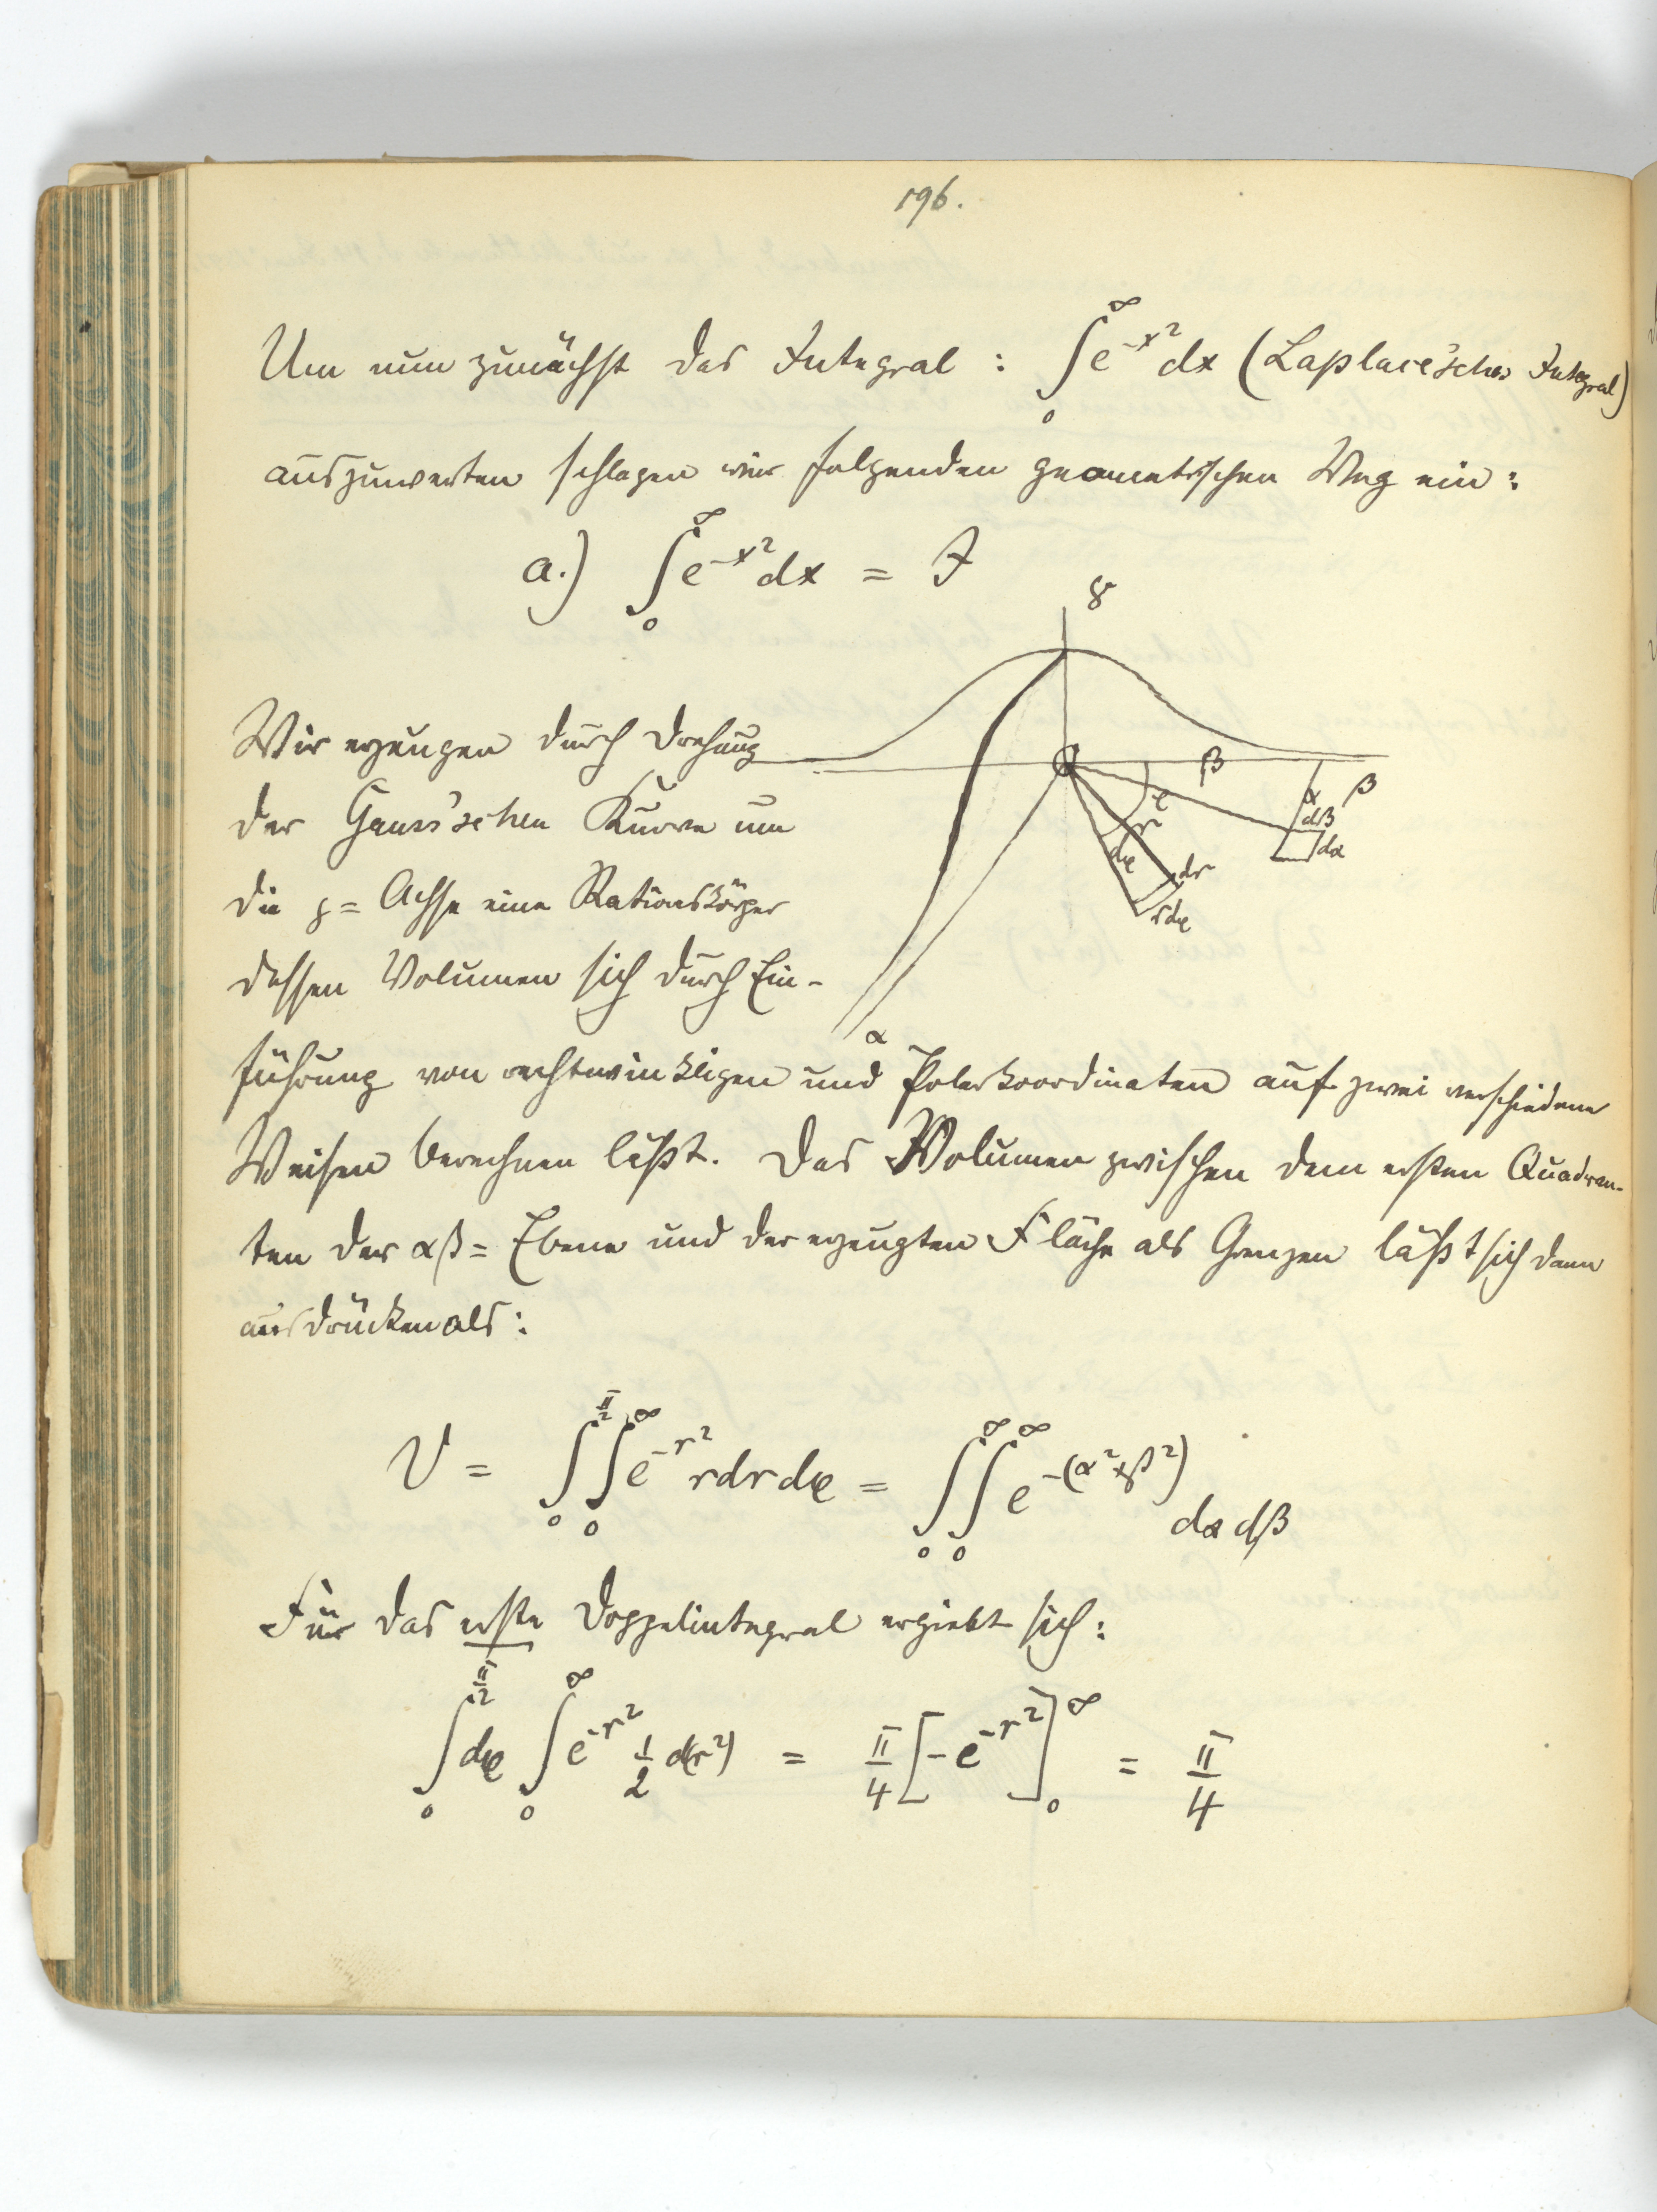 196.
Um nun zunächst das Integral : ∫₀^∞ e^{-x²} dx (Laplace'sches Integral)
auszuwerten schlagen wir folgenden geometrischen Weg ein:
a.) ∫₀^∞ e^{-x²} dx = J
γ
Wir erzeugen durch Drehung
der Gauss'schen Kurve um
die z= Achse eine Rationskörper
dessen Volumen sich durch Ein-
β
β
α
dβ
dα
φ
r
dφ
dr
rdφ
α
führung von rechtwinkligen und Polarkoordinaten auf zwei verschiedene
Weisen berechnen läßt. Das Volumen zwischen dem ersten Quadran-
ten der αβ= Ebene und der erzeugten Fläche als Grenzen läßt sich dann
ausdrücken als:
V = ∫₀^{π/2} ∫₀^∞ e^{-r²} r dr dφ = ∫₀^∞ ∫₀^∞ e^{-(α²+β²)} dα dβ
Für das erste Doppelintegral ergiebt sich:
∫₀^{π/2} dφ ∫₀^∞ e^{-r²} 1/2 d(r²) = π/4 [-e^{-r²}]₀^∞ = π/4